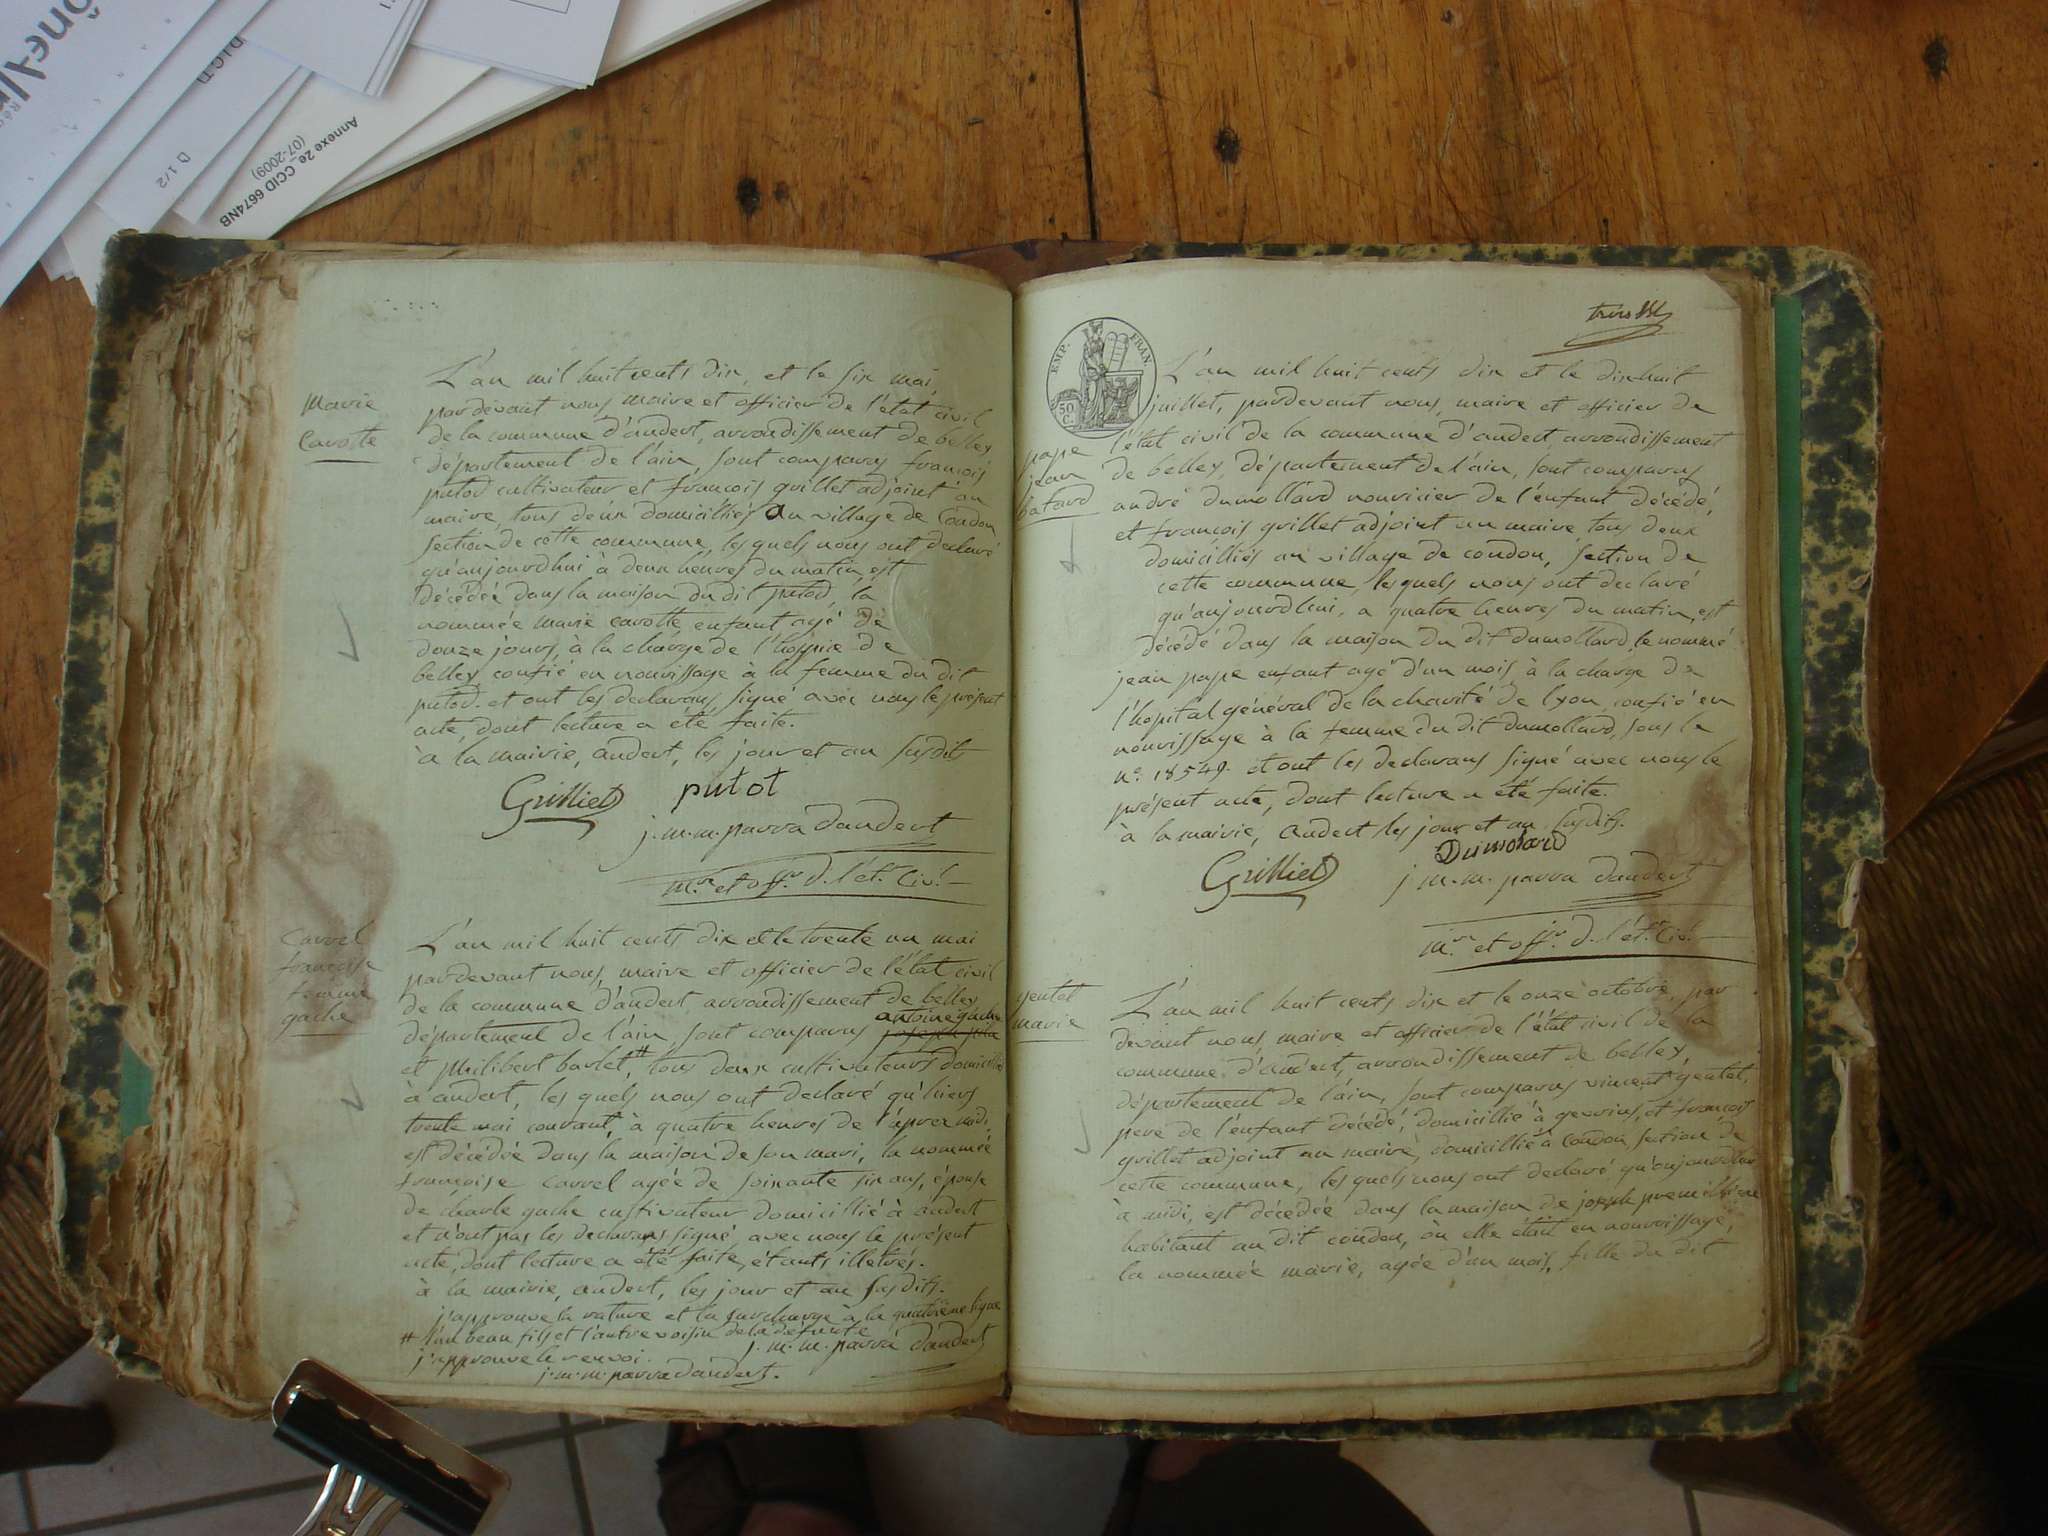 D 1/2
Annexe 2e_CCID 6674NB
(07-2009)
marie
carotte
L'an mil huit cents dix, et le six mai,
pardevant nous maire et officier de l'état civil
de la commune d'andert, arrondissement de belley
département de l'ain, sont comparus françois
putod cultivateur et francois grillet adjoint au
maire, tous deux domiciliés au village de Condon
section de cette commune, les quels nous ont declaré
qu'aujourdhui à deux heures du matin est
décédée dans la maison du dit putod, la
nommée marie carotte enfant agé de
douze jours, à la charge de l'hospice de
belley confié en nourissage à la femme du dit
putod. et ont les declarans signé avec nous le présent
acte, dont lecture a été faite.
à la mairie, andert, les jour et an susdits
Grilliet putot
j. m. m. parra dandert
m.re et off.r d. l'ét. civ.l
carrel
francoise
femme
gache
L'an mil huit cents dix et le trente un mai
pardevant nous, maire et officier de l'état civil
de la commune d'andert arrondissement de belley
département de l'ain sont comparus antoine gache
et philibert barlet #, tous deux cultivateurs domiciliés
à andert, les quels nous ont declaré qu'hiers
trente mai courant, à quatre heures de l'apres midi,
est décédée dans la maison de son mari, la nommée
françoise carrel agée de soixante six ans, épouse
de charle gache cultivateur domicillié à andert
et n'ont pas les declarans signé avec nous le présent
acte, dont lecture a été faite, étants illetrés.
à la mairie, andert, les jour et an susdits.
j'approuve la rature et la surcharge à la quatrième ligne
# l'un beau fils et l'autre voisin de la défunte
j. m. m. parra dandert
j'approuve le renvoi.
j. m. m. parra dandert.
trois
EMP. FRAN
50 C.
pape
jean
batard
L'an mil huit cents dix et le dix-huit
juillet, pardevant nous, maire et officier de
l'état civil de la commune d'andert, arrondissement
de belley, département de l'ain, sont comparus
andré dumollard nouricier de l'enfant décédé,
et françois grillet adjoint au maire, tous deux
domicilliés au village de condon, section de
cette commune, les quels nous ont declaré
qu'aujourdhui, a quatre heures du matin, est
décédé dans la maison du dit dumollard, le nommé
jean pape enfant agé d'un mois, à la charge de
l'hopital général de la charité de lyon, confié en
nourissage à la femme du dit dumollard, sous le
n.o 18549. et ont les declarans signé avec nous le
présent acte, dont lecture a été faite.
à la mairie, andert, les jour et an susdits.
Dumolard
Grilliet j. m. m. parra dandert
m.re et off.r d. l'ét. civ.l
gentet
marie
L'an mil huit cents dix et le onze octobre, par
devant nous, maire et officier de l'état civil de la
commune d'andert, arrondissement de belley,
département de l'ain, sont comparus vincent gentet,
pere de l'enfant décédé, domicillié à et françois
grillet adjoint au maire, domicillié à Condon section de
cette commune, les quels nous ont declaré qu'aujourdhui
à midi, est décédée dans la maison de joseph premillieu
habitant au dit condon, où elle était en nourissage,
la nommée marie, agée d'un mois, fille du dit